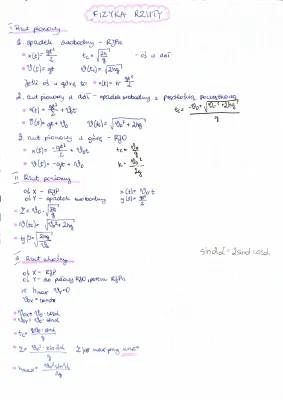 FIZYKA RZUTY
I Rzut pionowy
1. spadek swobodny - RJPto
x(t) = gt²/2 tc = √(2h/g) - oś w dół
v(t) = gt v(tc) = √(2hg)
Jeśli oś w górę to x(t) = h - gt²/2
2. rzut pionowy w dół - spadek swobodny z prędkością początkową
x(t) = gt²/2 + v₀t tc = (-v₀ + √(v₀² + 2hg))/g
v(t) = gt + v₀ v(tk) = √(v₀² + 2hg)
3. rzut pionowy w górę - RJO
x(t) = -gt²/2 + v₀t tc = v₀/g
v(t) = -gt + v₀ h = v₀²/2g
II Rzut poziomy
oś X - RJP x(t) = v₀t
oś Y - spadek swobodny y(t) = gt²/2
Z = v₀ · √(2h/g)
v(tc) = √(v₀² + 2hg)
tgβ = √(2hg/v₀²)
III Rzut ukośny
oś X - RJP
w hmax vy = 0
v₀x = v₀ · cosα
v₀y = v₀ · sinα
sin2α = 2sinα cosα
tc = 2v₀ · sinα/g
Z = v₀² · sin2α/g
hmax = v₀² sin²α/2g